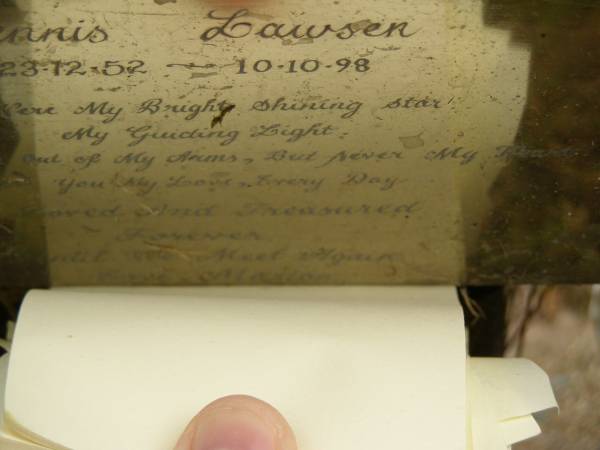 nnis Lawsen
23-12-52 ~ 10-10-98
ere My Bright Shining Star
My Guiding Light.
Out of My Arms, But Never My Heart
You My Love, Every Day
Loved And Treasured
Forever
Until We Meet Again
Love Marion